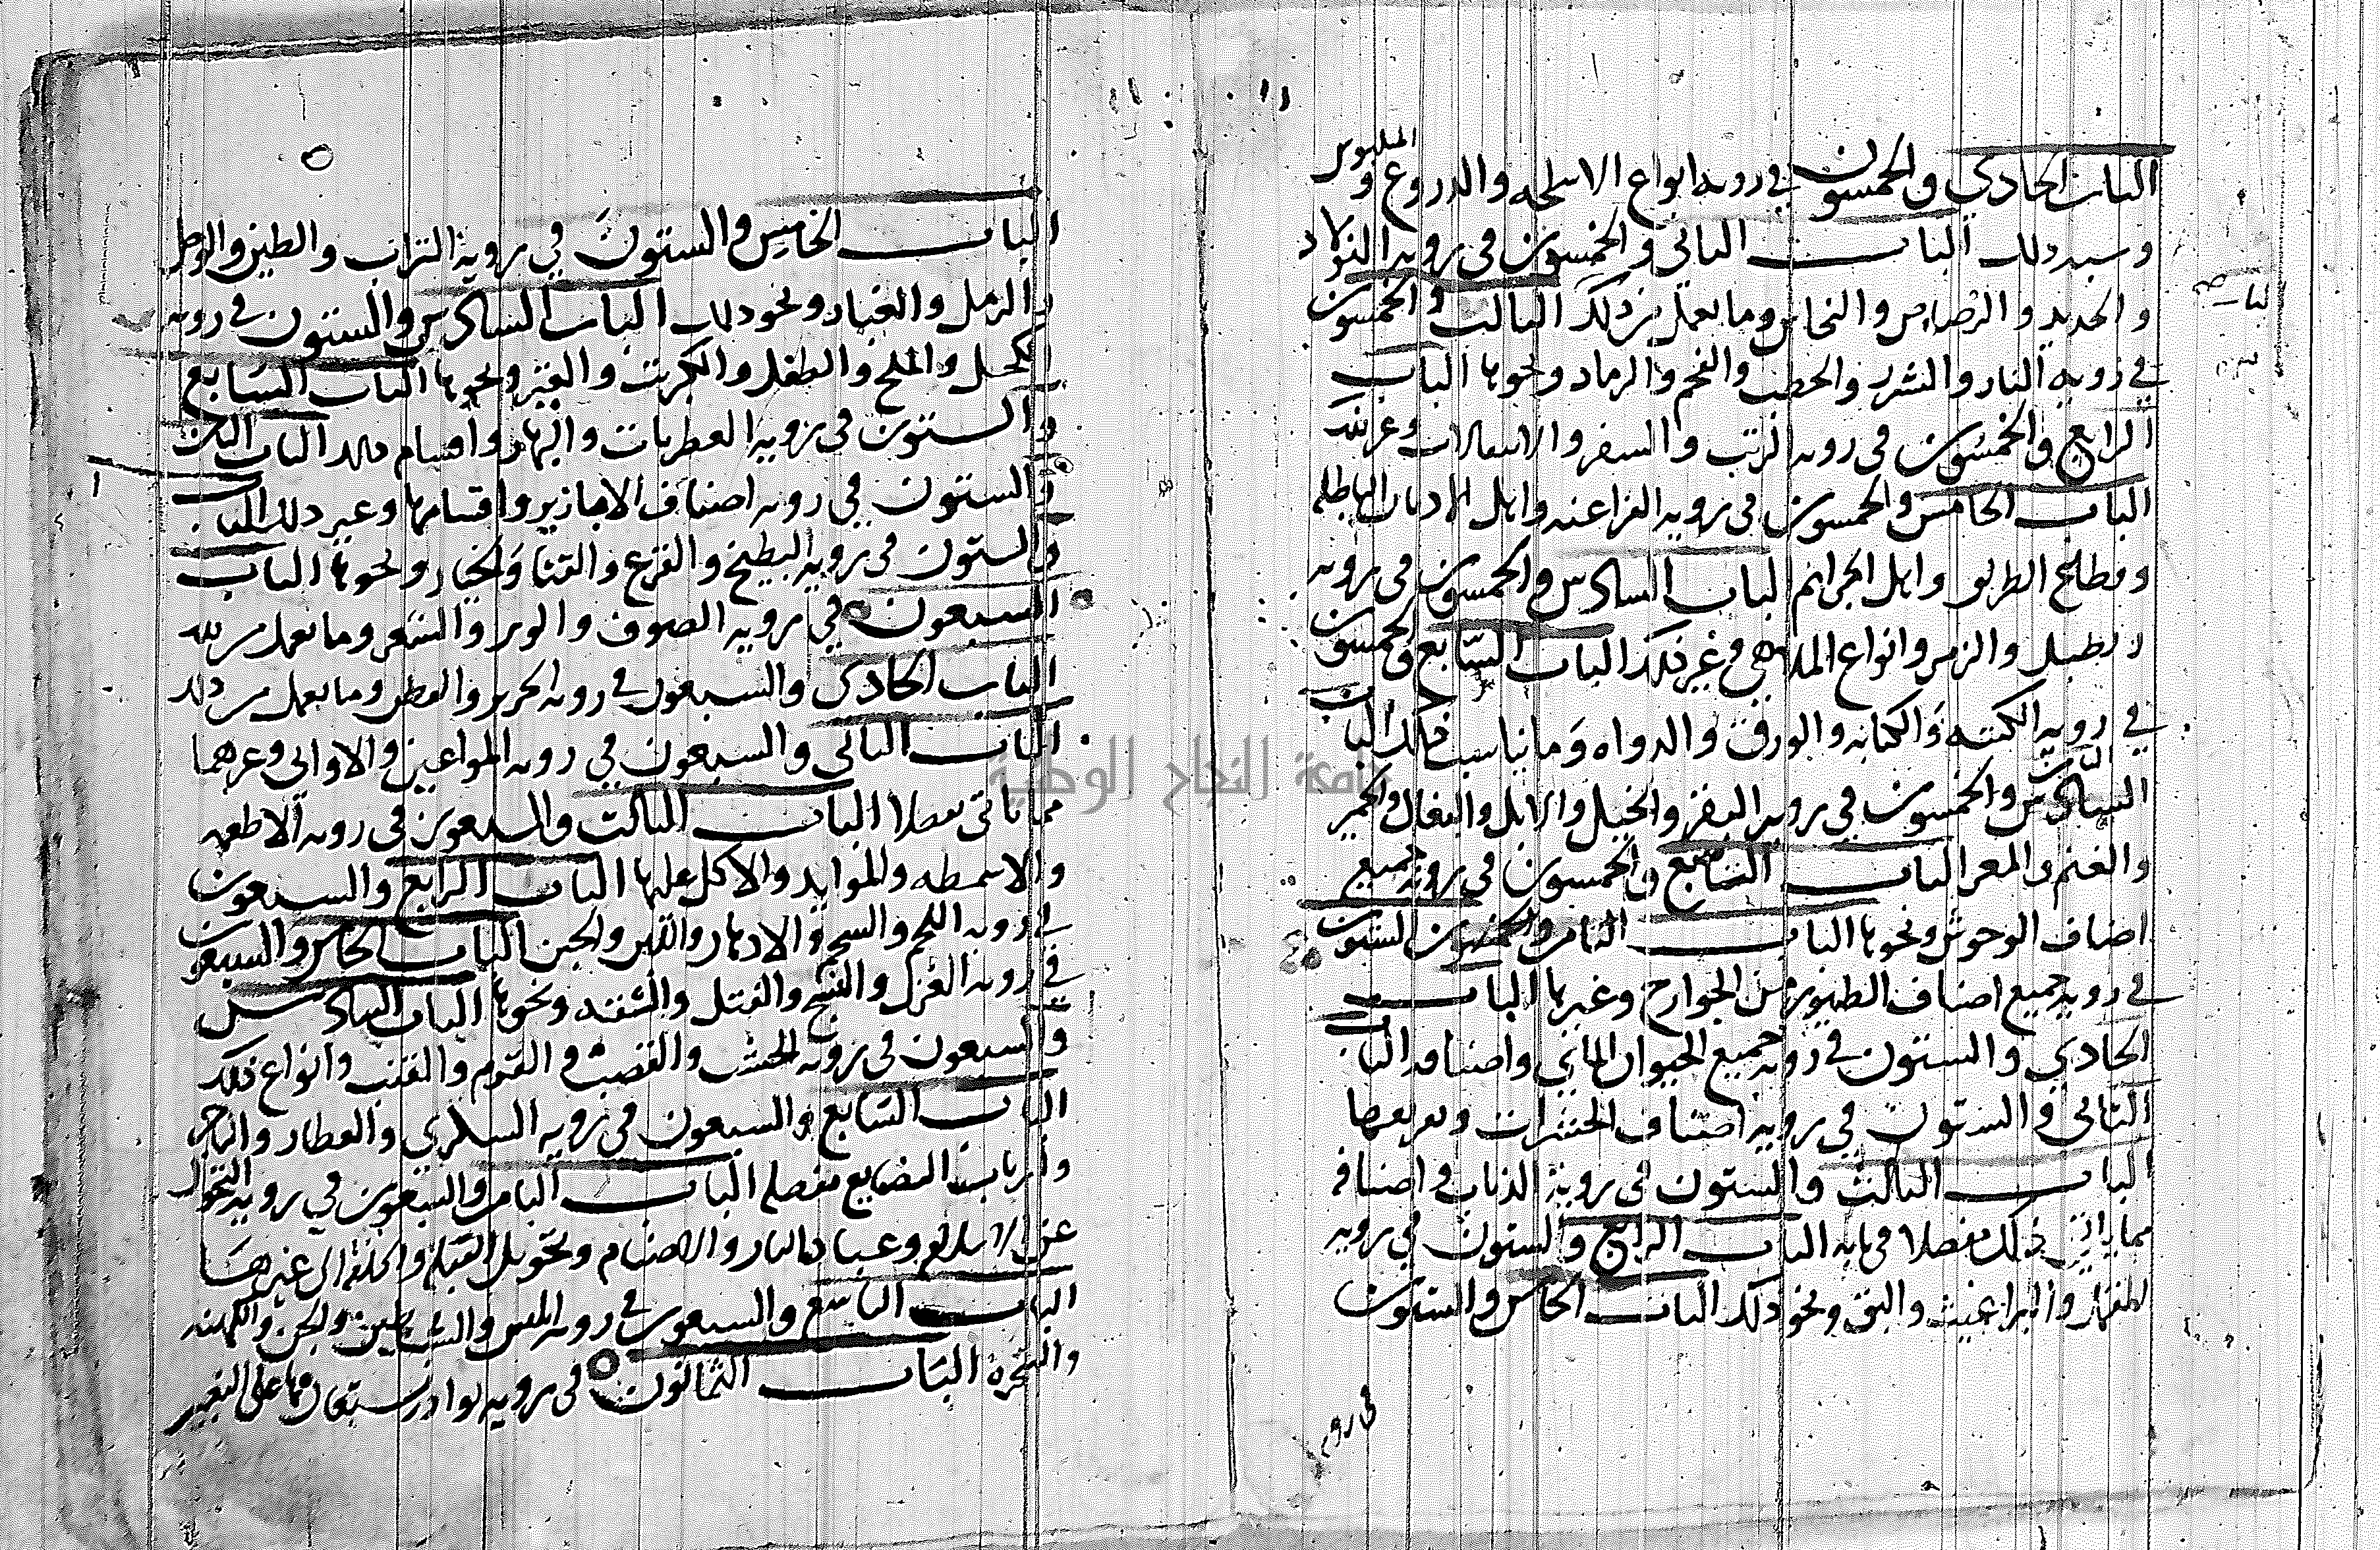 الباب الحادي والخمسون في رويه انواع الاسلحه والدروع والملبوس
وشبه ذلك الباب الثاني والخمسون في رويه الفولاد
والحديد والرصاص والنحاس وما يعمل من ذلك الثالث والخمسون
في رويه النار والشرر والحطب والفحم والرماد ونحوها الباب
الرابع والخمسون في رويه والسفر والانتقالات وغير ذلك
الباب الخامس والخمسون في رويه الفراعنه واهل الاديان الباطله
وقطاع الطريق واهل الجرائم الباب السادس والخمسون في رويه
الطبل والزمر وانواع الملاهي وغير ذلك الباب السابع والخمسون
في رويه الكتبه والكتابه والورق والدواه وما يناسب ذلك الباب
الثامن
السادس والخمسون في رويه البقر والخيل والابل والبغال والحمير
والغنم والمعز الباب التاسع والخمسون في رويه جميع
اصناف الوحوش ونحوها الباب الستون
في رويه جميع اصناف الطيور من الجوارح وغيرها الباب
الحادي والستون في رويه جميع الحيوان المائي واصنافه الباب
الثاني والستون في رويه اصناف الحشرات
الباب الثالث والستون في رويه الذباب واصنافه
ذلك مفصلا في بابه الباب الرابع والستون في رويه
والبراغيث والبق ونحو ذلك الباب الخامس والستون
في رويه
الباب الخامس والستون في روية التراب والطين والوحل
والرمل والغبار ونحو ذلك الباب السادس والستون في رويه
الكحل والملح والطفل والكبريت والقير ونحوها الباب السابع
والستون في رويه العطريات والبهار واقسام ذلك الباب الثامن
والستون في رويه اصناف الابازير واقسامها وغير ذلك الباب
والستون في رويه البطيخ والقرع والقثا والخيار ونحوها الباب
السبعون في رويه الصوف والوبر والشعر وما يعمل من ذلك
الباب الحادي والسبعون في رويه الحرير والقطن وما يعمل من ذلك
الباب الثاني والسبعون في رويه المواعين والاواني وغيرهما
مما ياتي مفصلا الباب الثالث والسبعون في رويه الاطعمه
والاسمطه والموايد والاكل عليها الباب الرابع والسبعون
في رويه اللحم والشحم والادهان واللبن والجبن الباب الخامس والسبعون
في رويه الغزل والنسج والفتل ونحوها الباب السادس
والسبعون في رويه الخشب والقصب والقنب وانواع ذلك
الباب السابع والسبعون في رويه السكري والعطار والتاجر
وارباب الصنايع مفصله الباب الثامن والسبعون في رويه التحول
عن الاسلام وعباده النار والاصنام وتحويل القبله الى غيرها
الباب التاسع والسبعون في رويه ابليس والشياطين والجن والكهنه
والسحره الباب الثمانون في رويه نوادر على التعبير